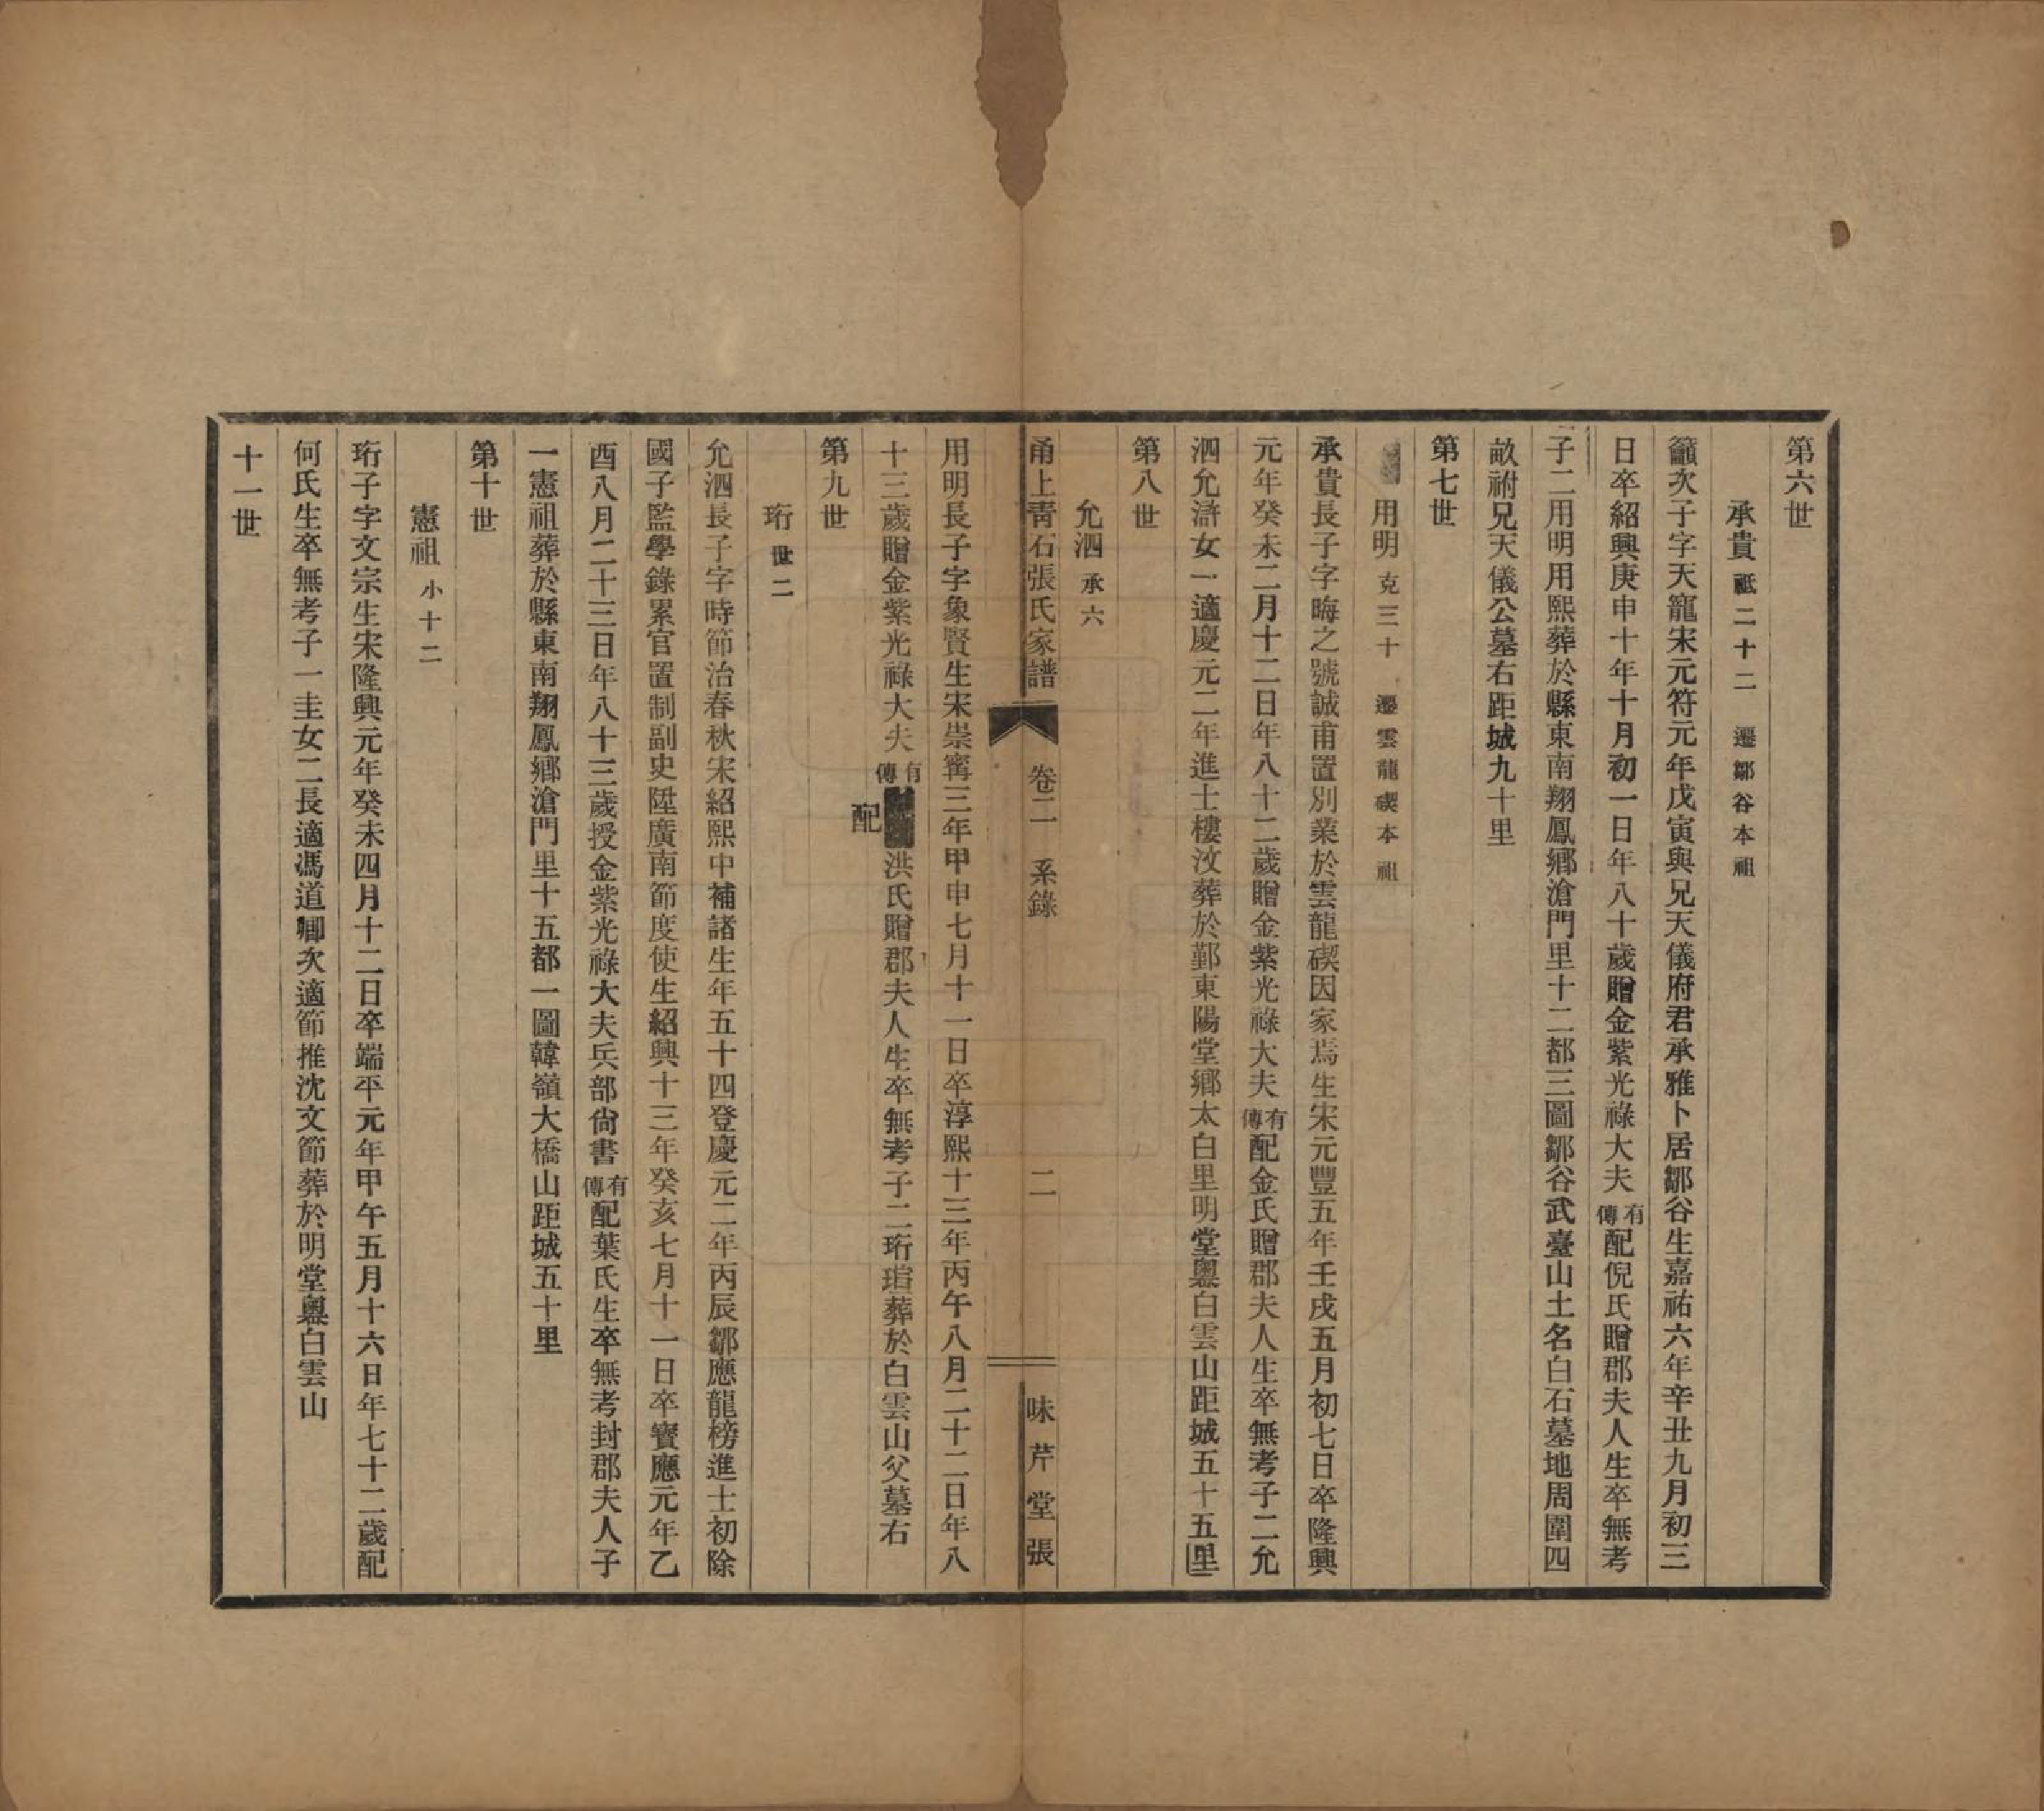 第六世
承貴 祗二十二 遷鄒谷本祖
籲次子字天寵宋元符元年戊寅與兄天儀府君承雅卜居鄒谷生嘉祐六年辛丑九月初三
日卒紹興庚申十年十月初一日年八十歲贈金紫光祿大夫有傳配倪氏贈郡夫人生卒無考
子二用明用熙葬於縣東南翔鳳鄉滄門里十二都三圖鄒谷武臺山土名白石墓地周圍四
畝祔兄天儀公墓右距城九十里
第七世
用明 克三十 遷雲龍碶本祖
承貴長子字晦之號誠甫置別業於雲龍碶因家焉生宋元豐五年壬戌五月初七日卒隆興
元年癸未二月十二日年八十二歲贈金紫光祿大夫有傳配金氏贈郡夫人生卒無考子二允
泗允滸女一適慶元二年進士樓汶葬於鄞東陽堂鄉太白里明堂奧白雲山距城五十五里
第八世
允泗 承六
甬上青石張氏家譜 卷二 系錄 二 味芹堂張
用明長子字象賢生宋崇寗三年甲申七月十一日卒淳熙十三年丙午八月二十二日年八
十三歲贈金紫光祿大夫有傳配洪氏贈郡夫人生卒無考子二珩瑎葬於白雲山父墓右
第九世
珩 世二
允泗長子字時節治春秋宋紹熙中補諸生年五十四登慶元二年丙辰鄒應龍榜進士初除
國子監學錄累官置制副史陞廣南節度使生紹興十三年癸亥七月十一日卒寶應元年乙
酉八月二十三日年八十三歲授金紫光祿大夫兵部尙書有傳配葉氏生卒無考封郡夫人子
一憲祖葬於縣東南翔鳳鄉滄門里十五都一圖韓嶺大橋山距城五十里
第十世
憲祖 小十二
珩子字文宗生宋隆興元年癸未四月十二日卒端平元年甲午五月十六日年七十二歲配
何氏生卒無考子一圭女二長適馮道卿次適節推沈文節葬於明堂奧白雲山
十一世